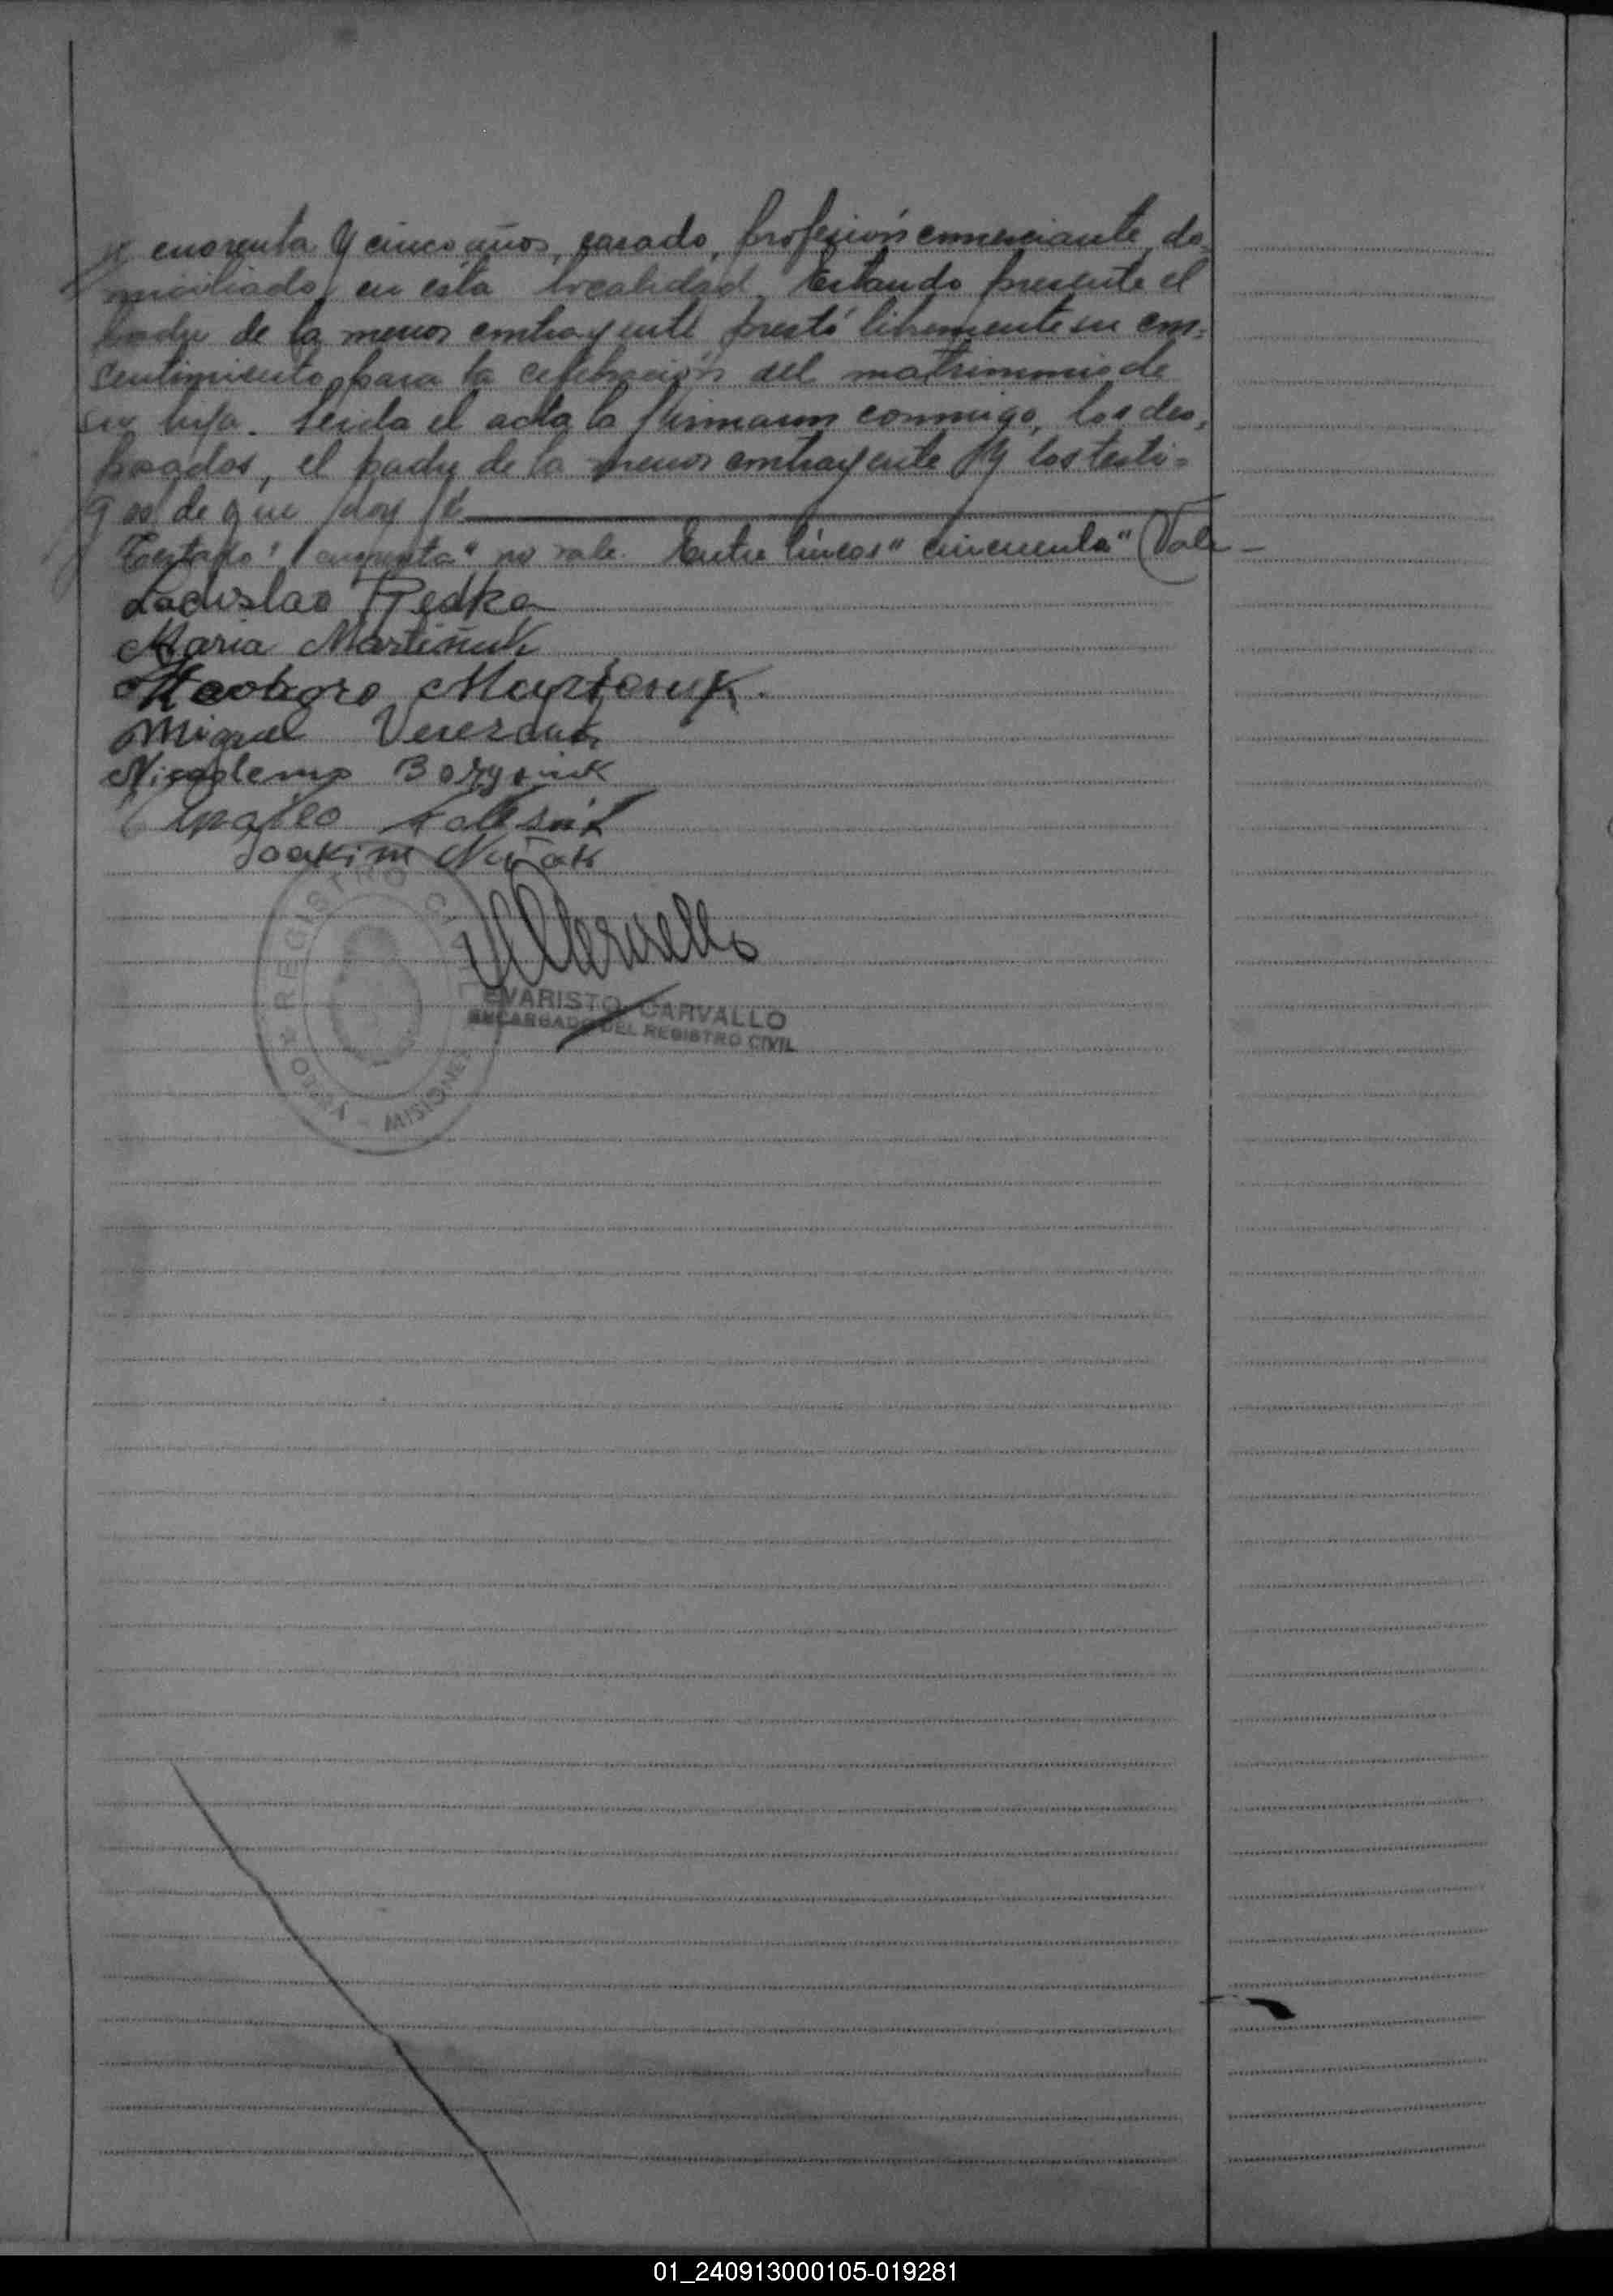 de cuarenta y cinco años, casado, profesión comerciante, do-
miciliado en ésta localidad. Estando presente el
padre de la menor contrayente prestó libremente su con-
sentimiento para la celebración del matrimonio de
su hija. Leida el acta la firmaron conmigo, los des-
posados, el padre de la menor contrayente y los testi-
gos de que doy fé
Testado " " no vale. Entre líneas "cincuenta" Vale -
Ladislao Redka
Maria Martiñuk
Martoniuk.
Miguel
Nicodemo
Joakim
REGISTRO CIVIL
MISIONES
EVARISTO CARVALLO
ENCARGADO DEL REGISTRO CIVIL
01_240913000105-019281